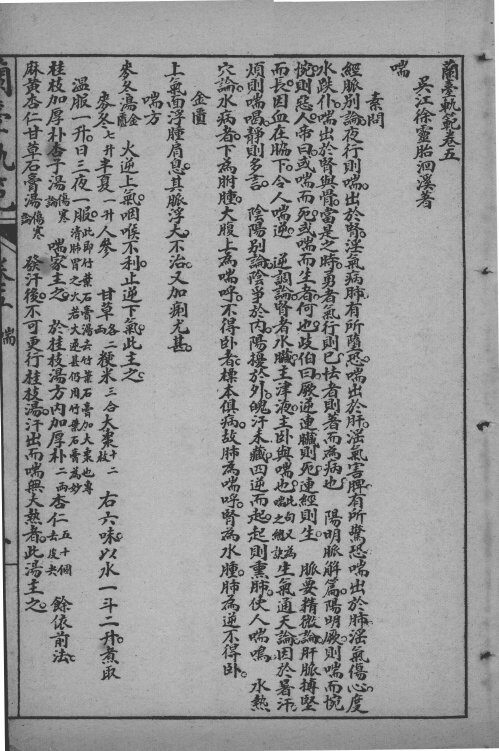 蘭臺軌範卷五
吳江徐靈胎洄溪著
喘
素問
經脈別論夜行則喘出於腎淫氣病肺有所墮恐喘出於肝淫氣害脾有所驚恐喘出於肺淫氣傷心度
水跌仆喘出於腎與骨當是之時勇者氣行則已怯者則著而為病也　陽明脈解篇陽明厥則喘而惋
惋則惡人帝曰或喘而死或喘而生者何也歧伯曰厥逆連臟則死連經則生　脈要精微論肝脈搏堅
而長因血在脇下令人喘逆　逆調論腎者水臟主津液主臥與喘也此句又為喘之總訣生氣通天論因於暑汗
煩則喘喝靜則多言　陰陽別論陰爭於內陽擾於外魄汗未藏四逆而起起則熏肺使人喘鳴　水熱
穴論水病者下為胕腫大腹上為喘呼不得臥者標本俱病故肺為喘呼腎為水腫肺為逆不得臥
金匱
上氣面浮腫肩息其脈浮大不治又加痢尤甚
喘方
麥冬湯金匱　火逆上氣咽喉不利止逆下氣此主之
麥冬七升半夏一升人參　甘草各二兩粳米三合大棗十二枚　右六味以水一斗二升煮取
溫服一升日三夜一服此即竹葉石膏湯去竹葉石膏加大棗也專清肺胃之火若火逆甚仍用竹葉石膏為妙
桂枝加厚朴杏子湯傷寒論　喘家主之　於桂枝湯方內加厚朴二兩杏仁五十個去皮尖　餘依前法
麻黃杏仁甘草石膏湯傷寒論　發汗後不可更行桂枝湯汗出而喘無大熱者此湯主之
蘭臺軌範　卷五　喘